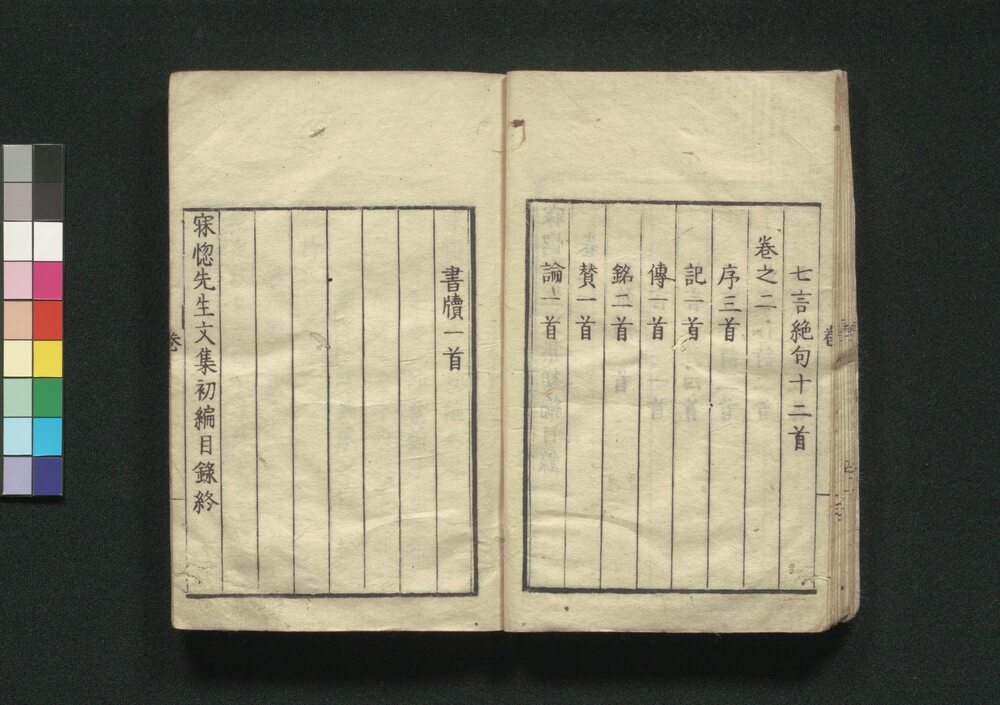 七言絶句十二首
卷之二
序三首
記一首
傳一首
銘二首
賛一首
論一首
書牘一首
寐惚先生文集初編目錄終